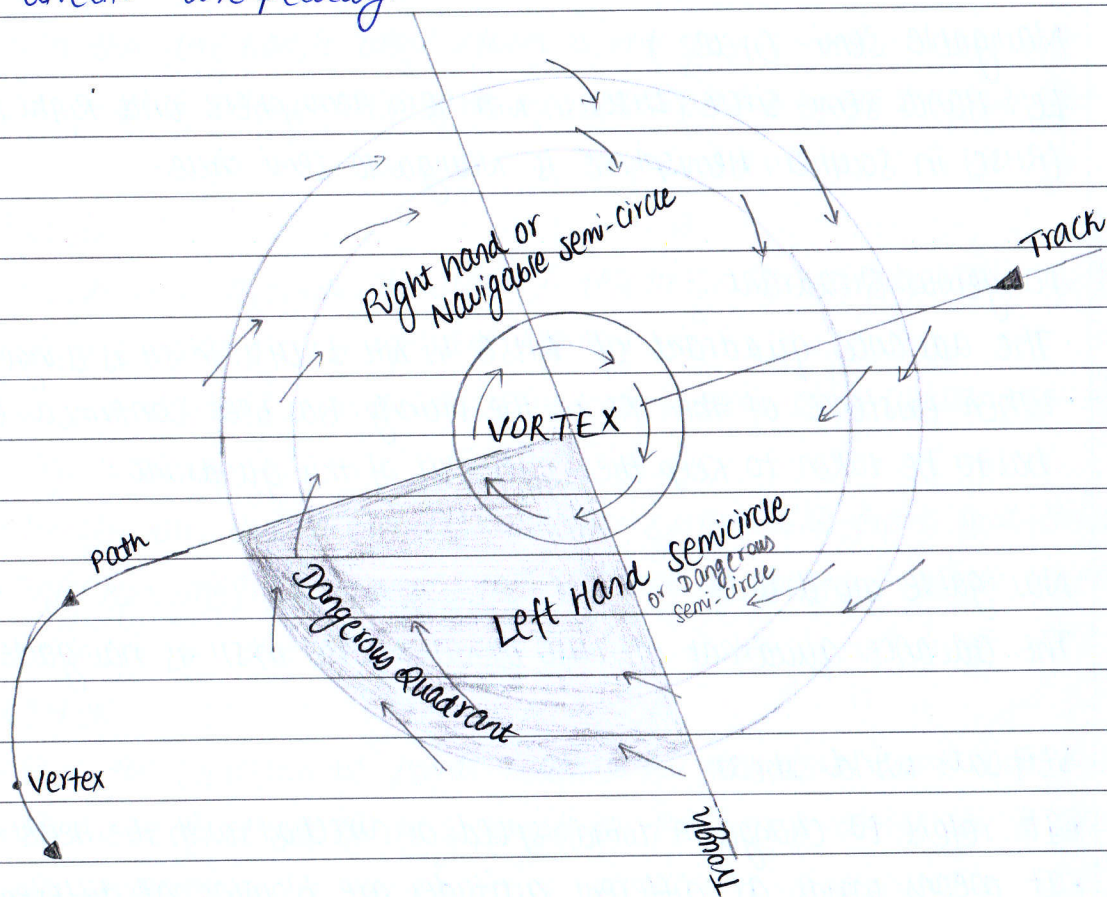 Track
Right hand or
Navigable semi-circle
VORTEX
Path
Left Hand semicircle
or Dangerous
semi-circle
Dangerous Quadrant
Vertex
Trough